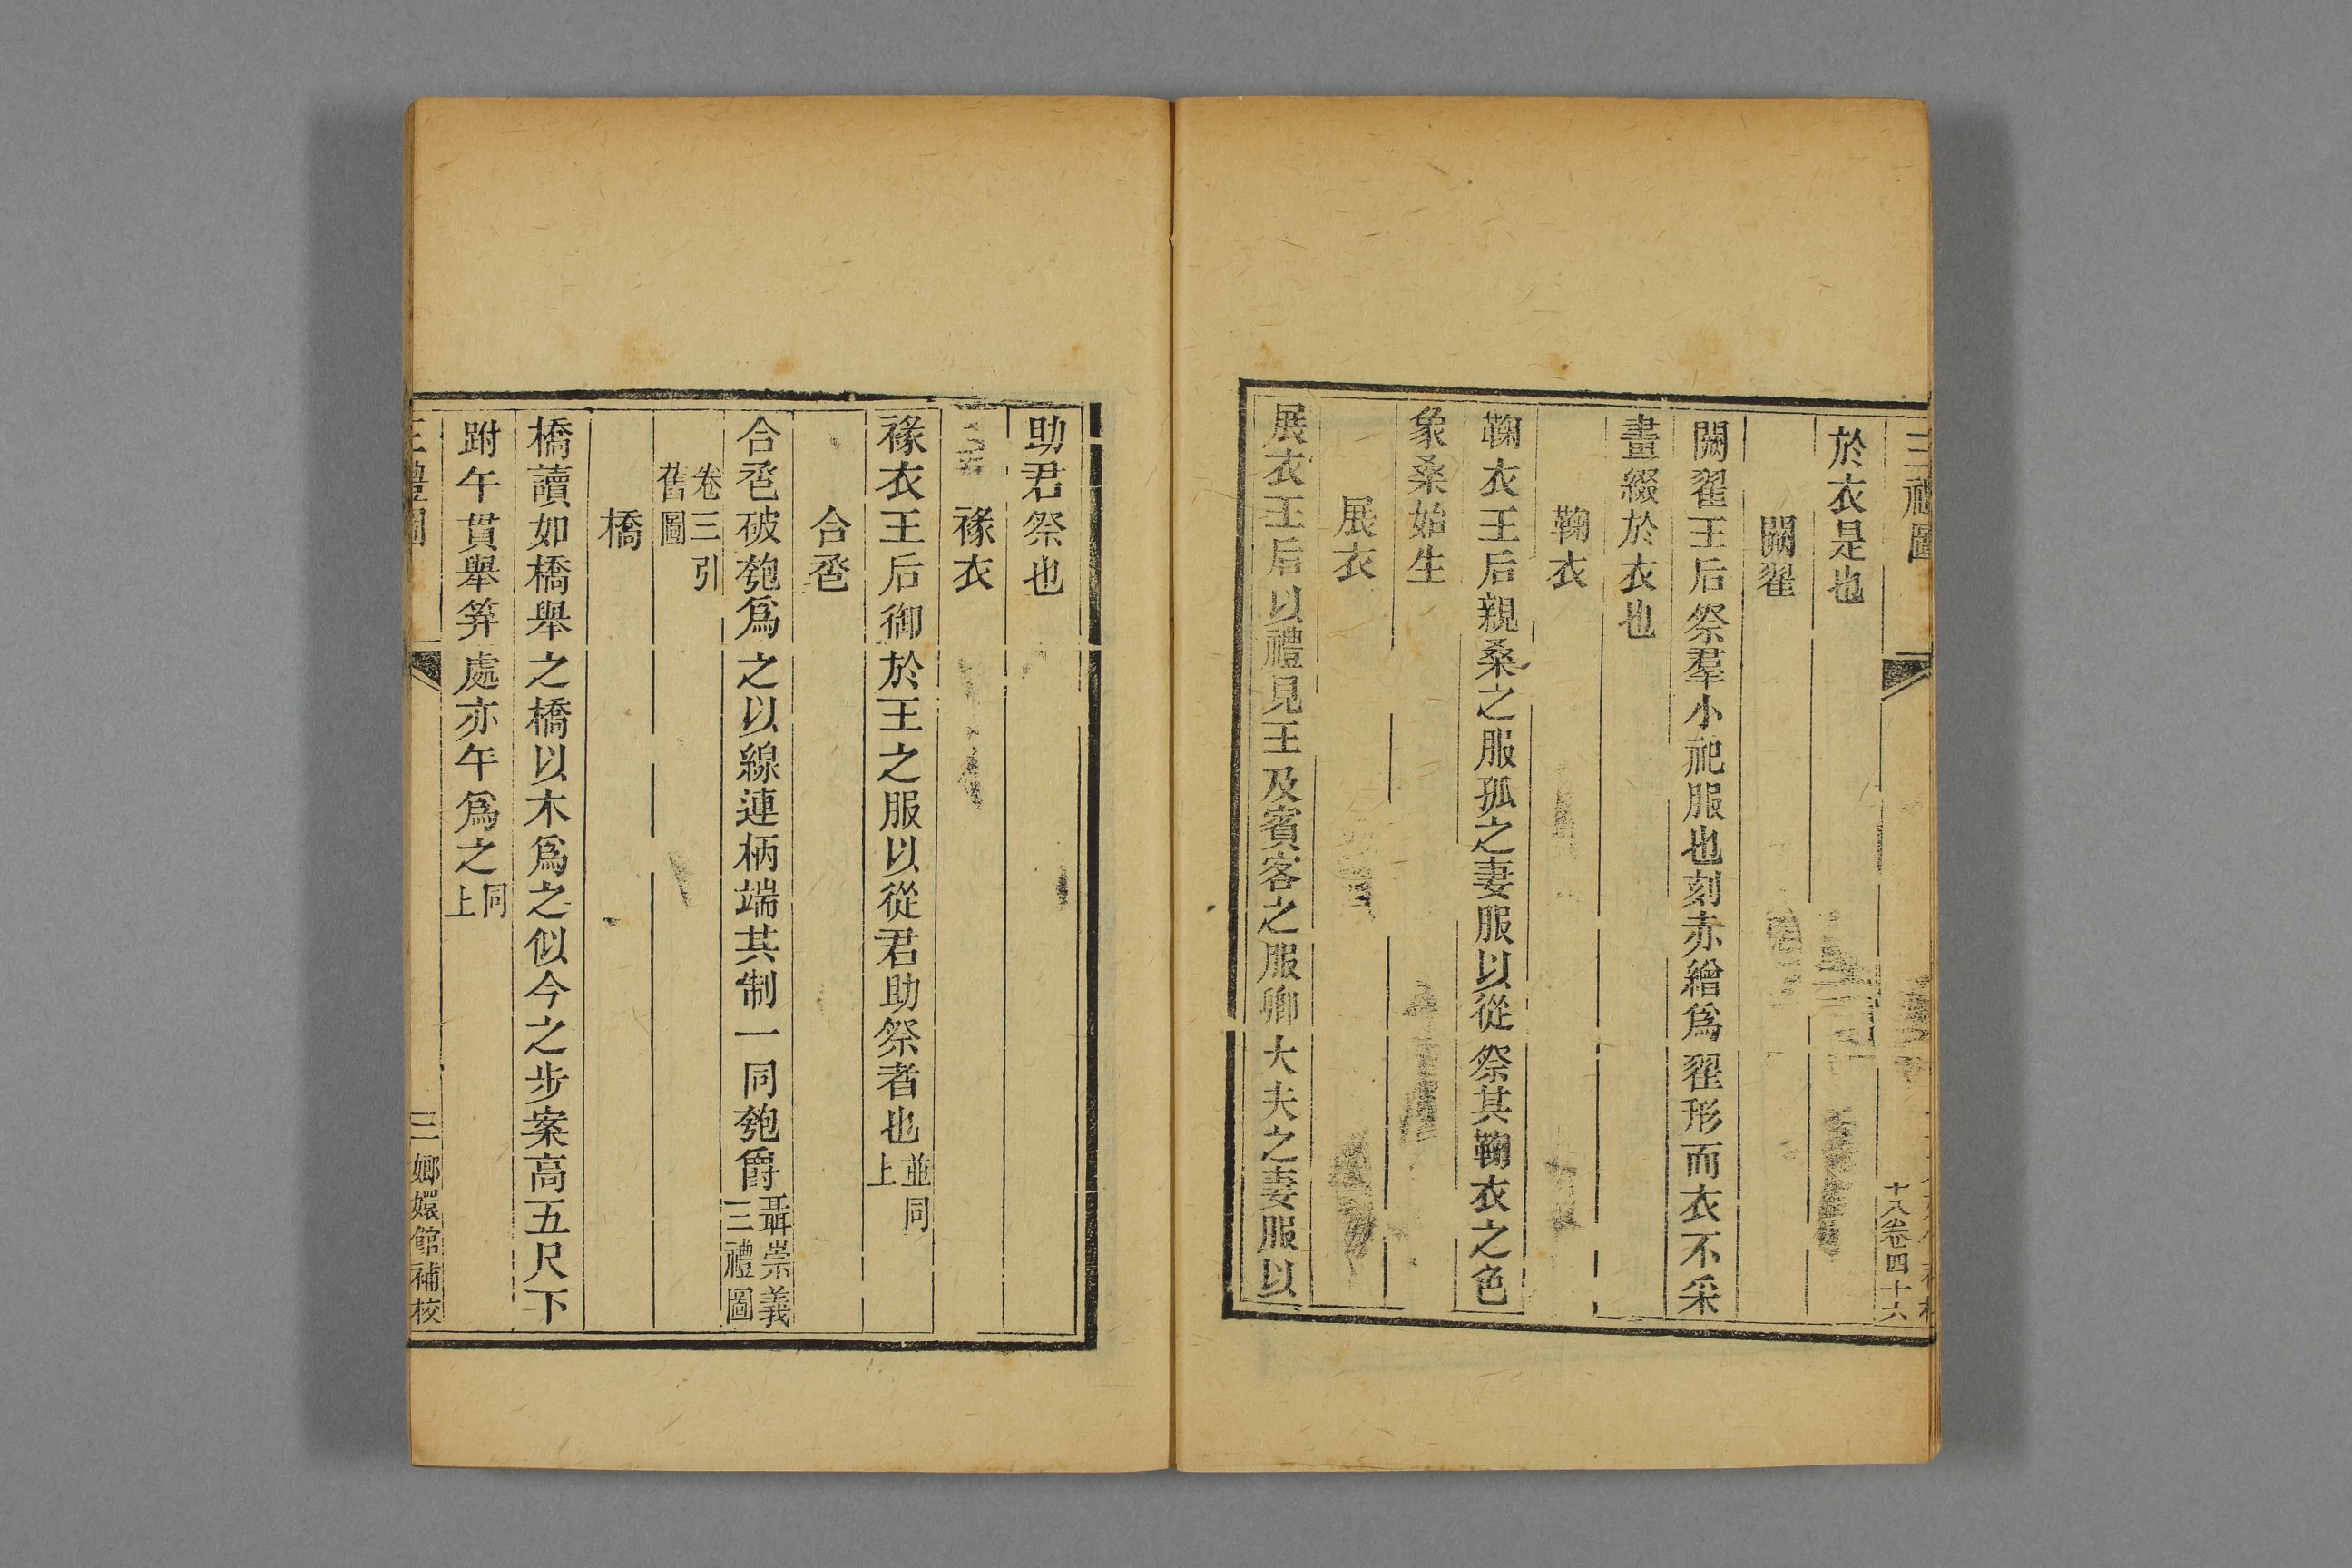 三禮圖
十八卷四十六
於衣是也
闕翟
闕翟王后祭羣小祀服也刻赤繒爲翟形而衣不采
畫綴於衣也
鞠衣
鞠衣王后親桑之服孤之妻服以從祭其鞠衣之色
象桑始生
展衣
展衣王后以禮見王及賓客之服卿大夫之妻服以
助君祭也
褖衣
褖衣王后御於王之服以從君助祭者也並同上
合卺
合卺破匏爲之以線連柄端其制一同匏爵聶崇義三禮圖
卷三引舊圖
橋
橋讀如橋舉之橋以木爲之似今之步案高五尺下
跗午貫舉筓處亦午爲之同上
三禮圖
三
嫏嬛館補校